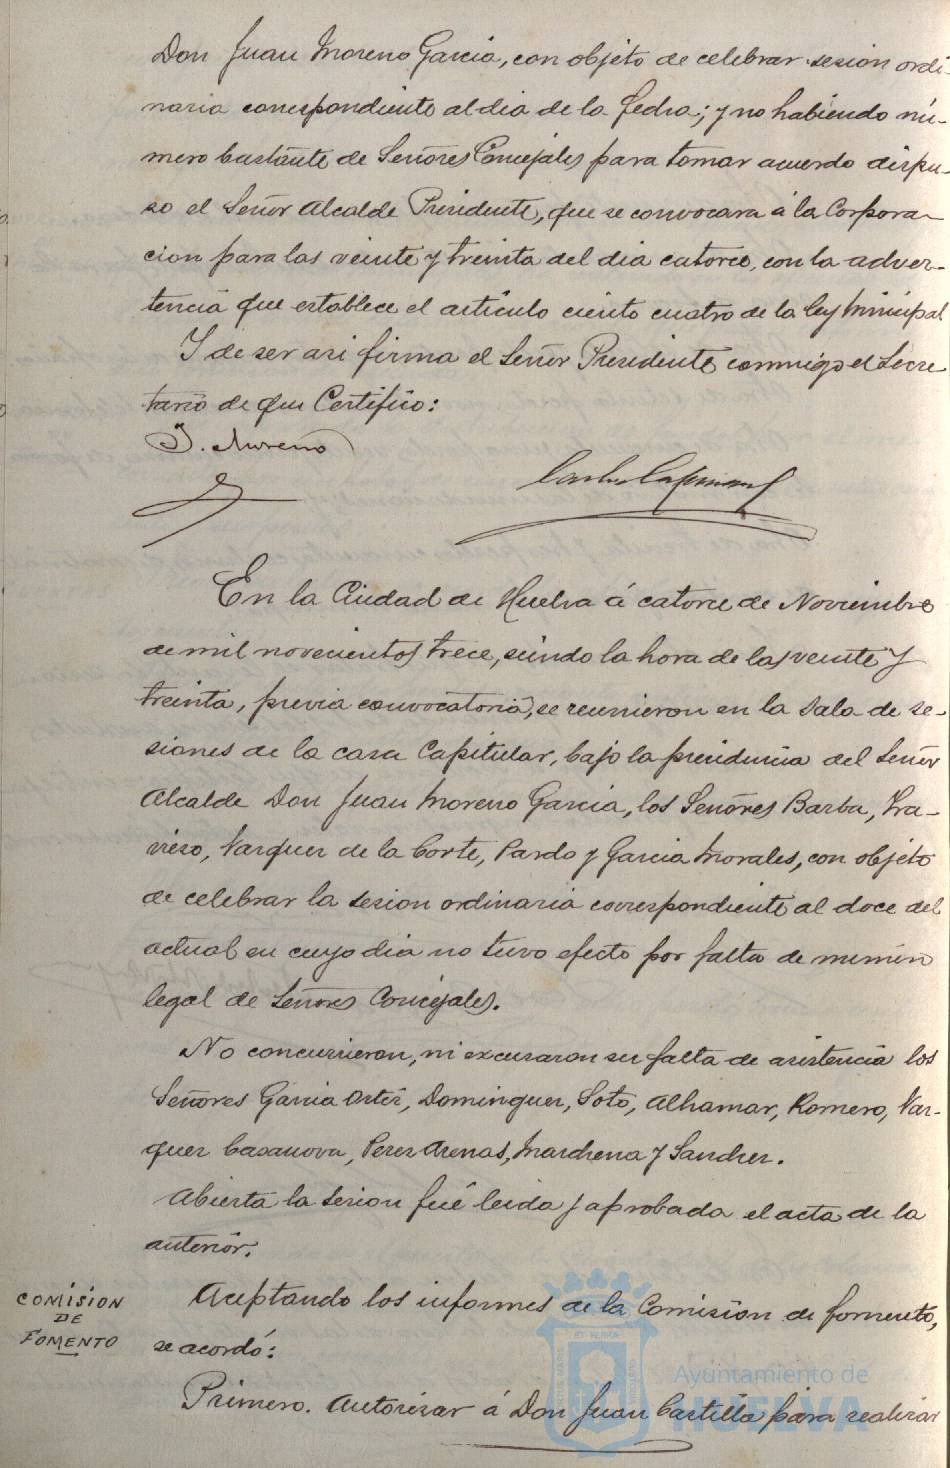 Don Juan Moreno Garcia, con objeto de celebrar sesion ordi-
naria correspondiente al dia de la fecha; y no habiendo nú-
mero bastante de Señores Concejales para tomar acuerdo dispu-
so el Señor Alcalde Presidente, que se convocara á la Corpora-
cion para las veinte y treinta del dia catorce, con la adver-
tencia que establece el articulo ciento cuatro de la ley Municipal
Y de ser asi firma el Señor Presidente conmigo el Secre
tario de que Certifico:
J. Moreno
En la Ciudad de Huelva á catorce de Noviembre
de mil novecientos trece, siendo la hora de las veinte y
treinta, previa convocatoria, se reunieron en la Sala de se-
siones de la casa Capitular, bajo la presidencia del Señor
Alcalde Don Juan Moreno Garcia, los Señores Barba, Tra-
vieso, Vazquez de la Corte, Pardo y Garcia Morales, con objeto
de celebrar la sesion ordinaria correspondiente al doce del
actual en cuyo dia no tuvo efecto por falta de numero
legal de Señores Concejales.
No concurrieron, ni excusaron su falta de asistencia los
Señores Garcia Ortiz, Dominguez, Soto, Alhamar, Romero, Vaz-
quez Casanova, Perez Arenas, Marchena y Sanchez.
Abierta la sesion fué leida y aprobada el acta de la
anterior.
COMISION
DE
FOMENTO
Aceptando los informes de la Comision de fomento,
se acordó:
Primero. Autorizar á Don Juan Castilla para realizar
Ayuntamiento de
HUELVA